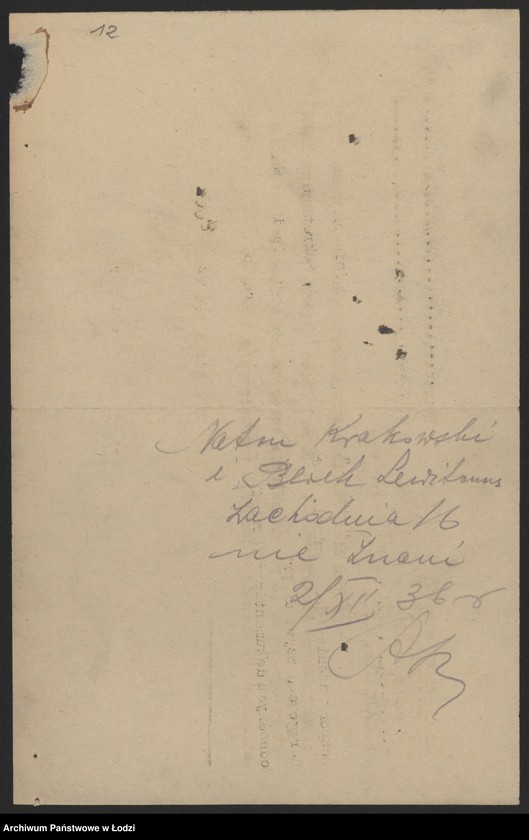 12
Natan Krakowski
i Berek Lewitanus
Zachodnia 16
nie znani
2/XII 36 r
Archiwum Państwowe w Łodzi